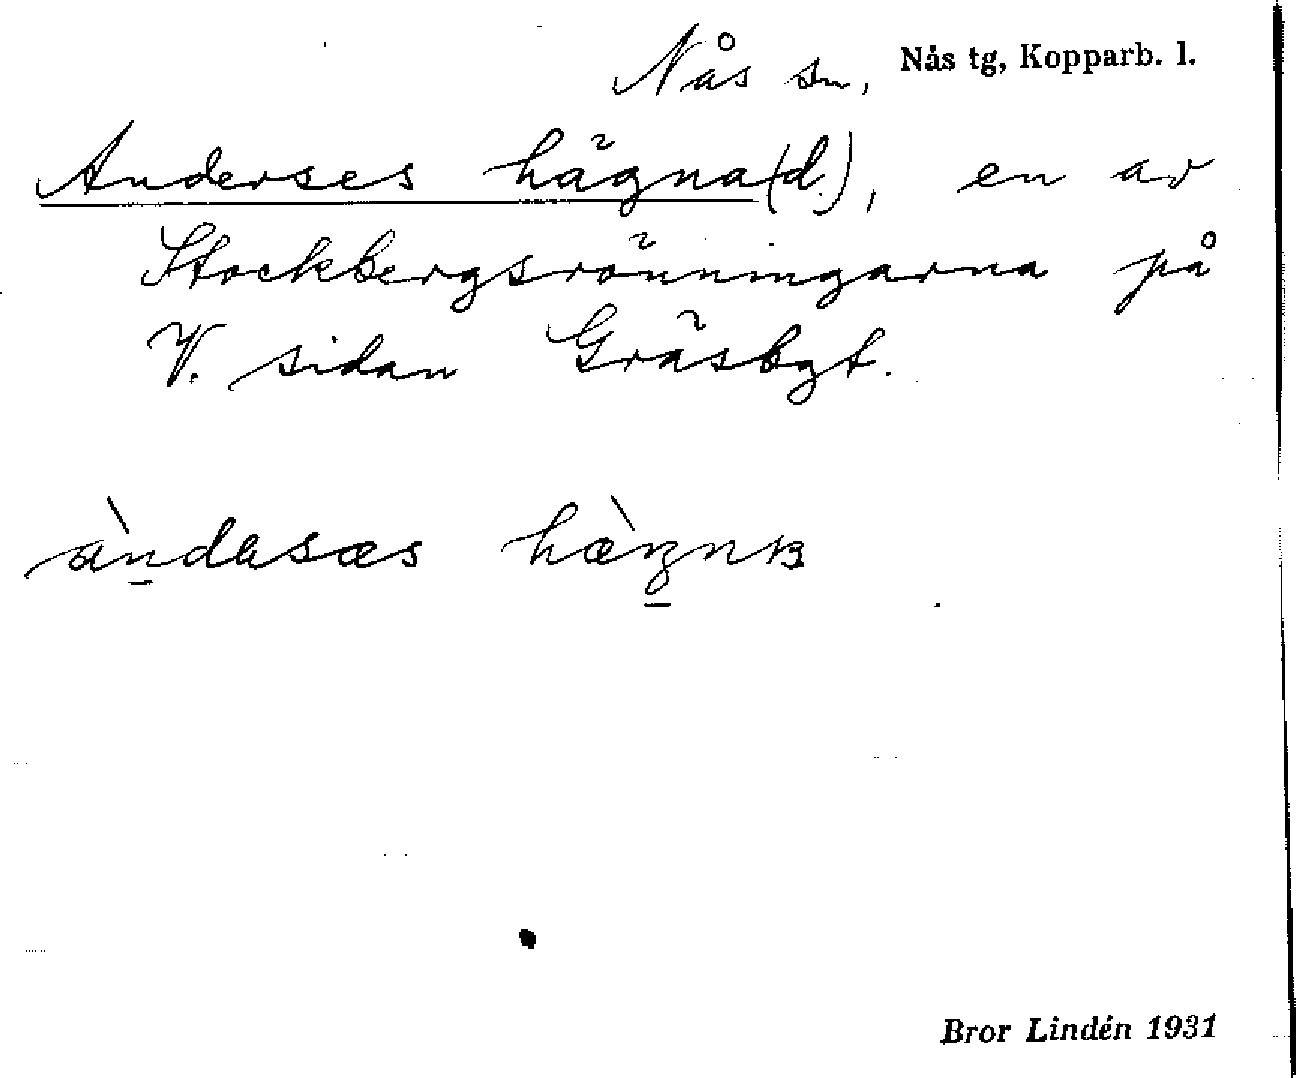 Nås sn, Nås tg, Kopparb. l.
Anderses hägna(d.), en av
Stockbergsrönningarna på
V. sidan Gräsbgt.
àndasæs
Bror Lindén 1931